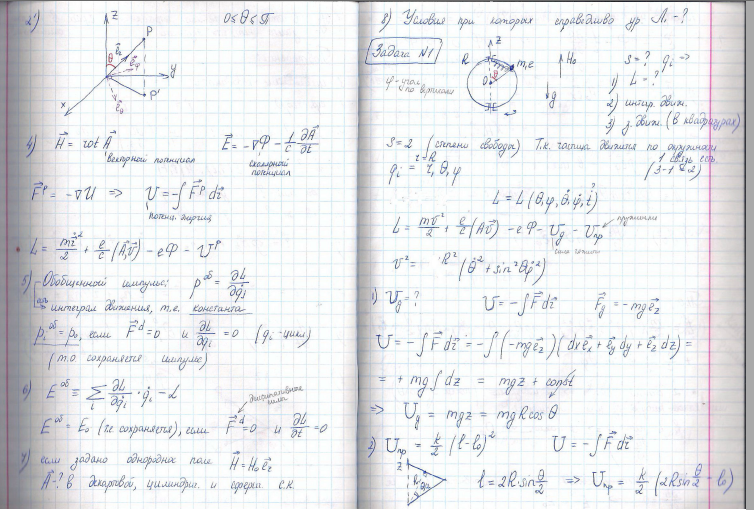 2)
0 ≤ θ ≤ π
z
P
θ
y
P'
x
4) H⃗ = rot A⃗ E⃗ = -∇Φ - 1/c ∂A⃗/∂t
векторный потенциал скалярный потенциал
F⃗ᴾ = -∇U ⇒ U = -∫ F⃗ᴾ dr⃗
потенц. энергия
L = mv⃗²/2 + e/c (A⃗,v⃗) - eΦ - Uᴾ
5) Обобщенный импульс: pᵒᵇ = ∂L/∂q̇ᵢ
интеграл движения, т.е. константа
pᵢᵒᵇ = p₀, если F⃗ᵈ = 0 и ∂L/∂qᵢ = 0 (qᵢ - цикл)
(т.о сохраняется импульс)
6) Eᵒᵇ ≡ Σᵢ ∂L/∂q̇ᵢ · q̇ᵢ - L
диссипативные силы
Eᵒᵇ = E₀ (т.е сохраняется), если F⃗ᵈ = 0 и ∂L/∂t = 0
7) если задано однородное поле H⃗ = H₀e⃗z
A⃗ - ? в декартовой, цилиндрич. и сферич. с.к.
8) Условия при которых справедливо ур Л. - ?
Задача N1
z
R
m, e
H₀
0
θ
g
φ - угол
S = ? qᵢ ⇒
1) L = ?
2) интегр. движ.
3) з. движ. (в квадратурах)
S = 2 (степени свободы) Т.к. частица движится по окружности
r = R
1 связь
(3-1=2)
qᵢ = r, θ, φ
L = L (θ, φ, θ̇, φ̇, t)
?
L = mv⃗²/2 + e/c (A⃗v⃗) - eΦ - Ug - Uпр
пружинки
сила тяжести
v² = R² (θ̇² + sin²θφ̇²)
1) Ug = ? U = -∫ F⃗ dr⃗ F⃗g = -mge⃗z
U = -∫ F⃗ dr⃗ = -∫ (-mge⃗z)(dxe⃗x + e⃗y dy + e⃗z dz) =
= + mg ∫ dz = mgz + const
⇒ Ug = mgz = mgRcos θ
2) Uпр = k/2 (l - l₀)² U = -∫ F⃗ dr⃗
z
l = 2R·sin θ/2 ⇒ Uпр = k/2 (2R sin θ/2 - l₀)